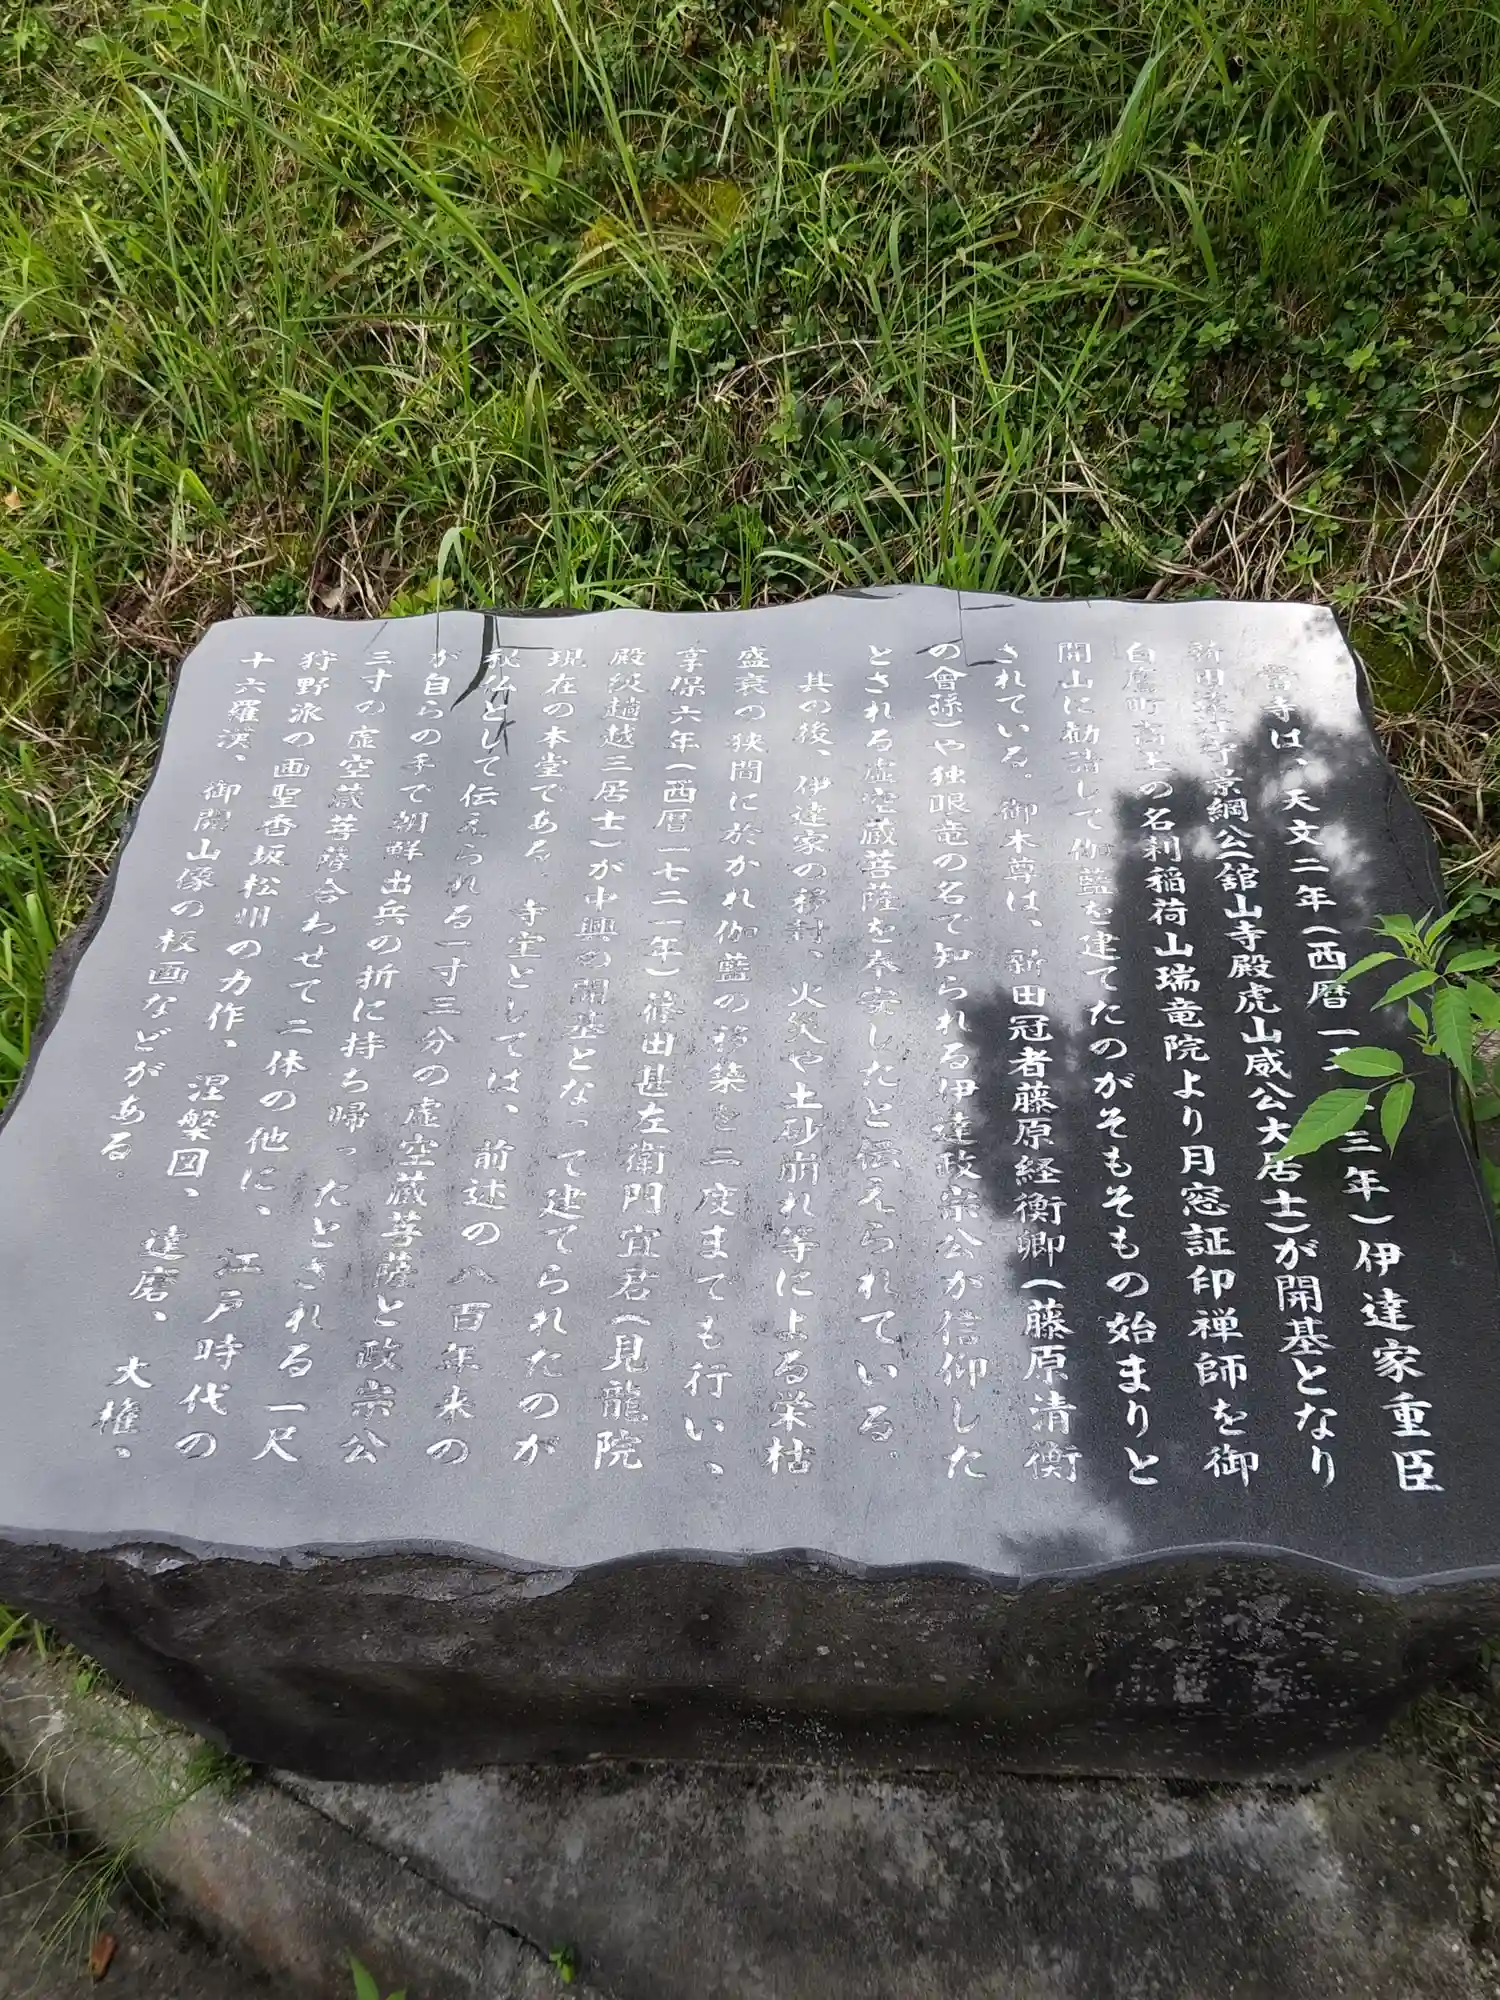 当寺は、天文二年(西暦一五三三年)伊達家重臣
新田遠江守景綱公(舘山寺殿虎山威公大居士)が開基となり
白鷹町高玉の名刹稲荷山瑞竜院より月窓証印禅師を御
開山に勧請して伽藍を建てたのがそもそもの始まりと
されている。御本尊は、新田冠者藤原経衡卿(藤原清衡
の會孫)や独眼竜の名で知られる伊達政宗公が信仰した
とされる虚空蔵菩薩を本安したと伝えられている。
其の後、伊達家の移封、火災や土砂崩れ等による栄枯
盛衰の狭間に於かれ伽藍の移築を二度までも行い、
享保六年(西暦一七二一年)篠田甚左衛門宜君(見龍院
殿級趙越三居士)が中興の開基となって建てられたのが
現在の本堂である。寺宝としては、前述の八百年来の
秘仏として伝えられる一寸三分の虚空蔵菩薩と政宗公
が自らの手で朝鮮出兵の折に持ち帰ったとされる一尺
三寸の虚空蔵菩薩合わせて二体の他に、江戸時代の
狩野派の画聖香坂松州の力作、涅槃図、達磨、大権、
十六羅漢、御開山像の板画などがある。